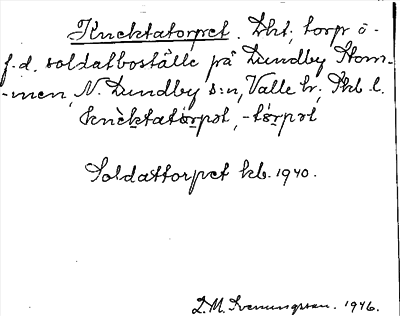 Knektatorpet. Lht; torp o.
f.d. soldatboställe på Lundby Stom-
-men, N. Lundby s:n, Valle hr, Skb. l.
knèktatårpət, -tårpət
Soldattorpet kb. 1940.
D.M. Svenungsson. 1946.